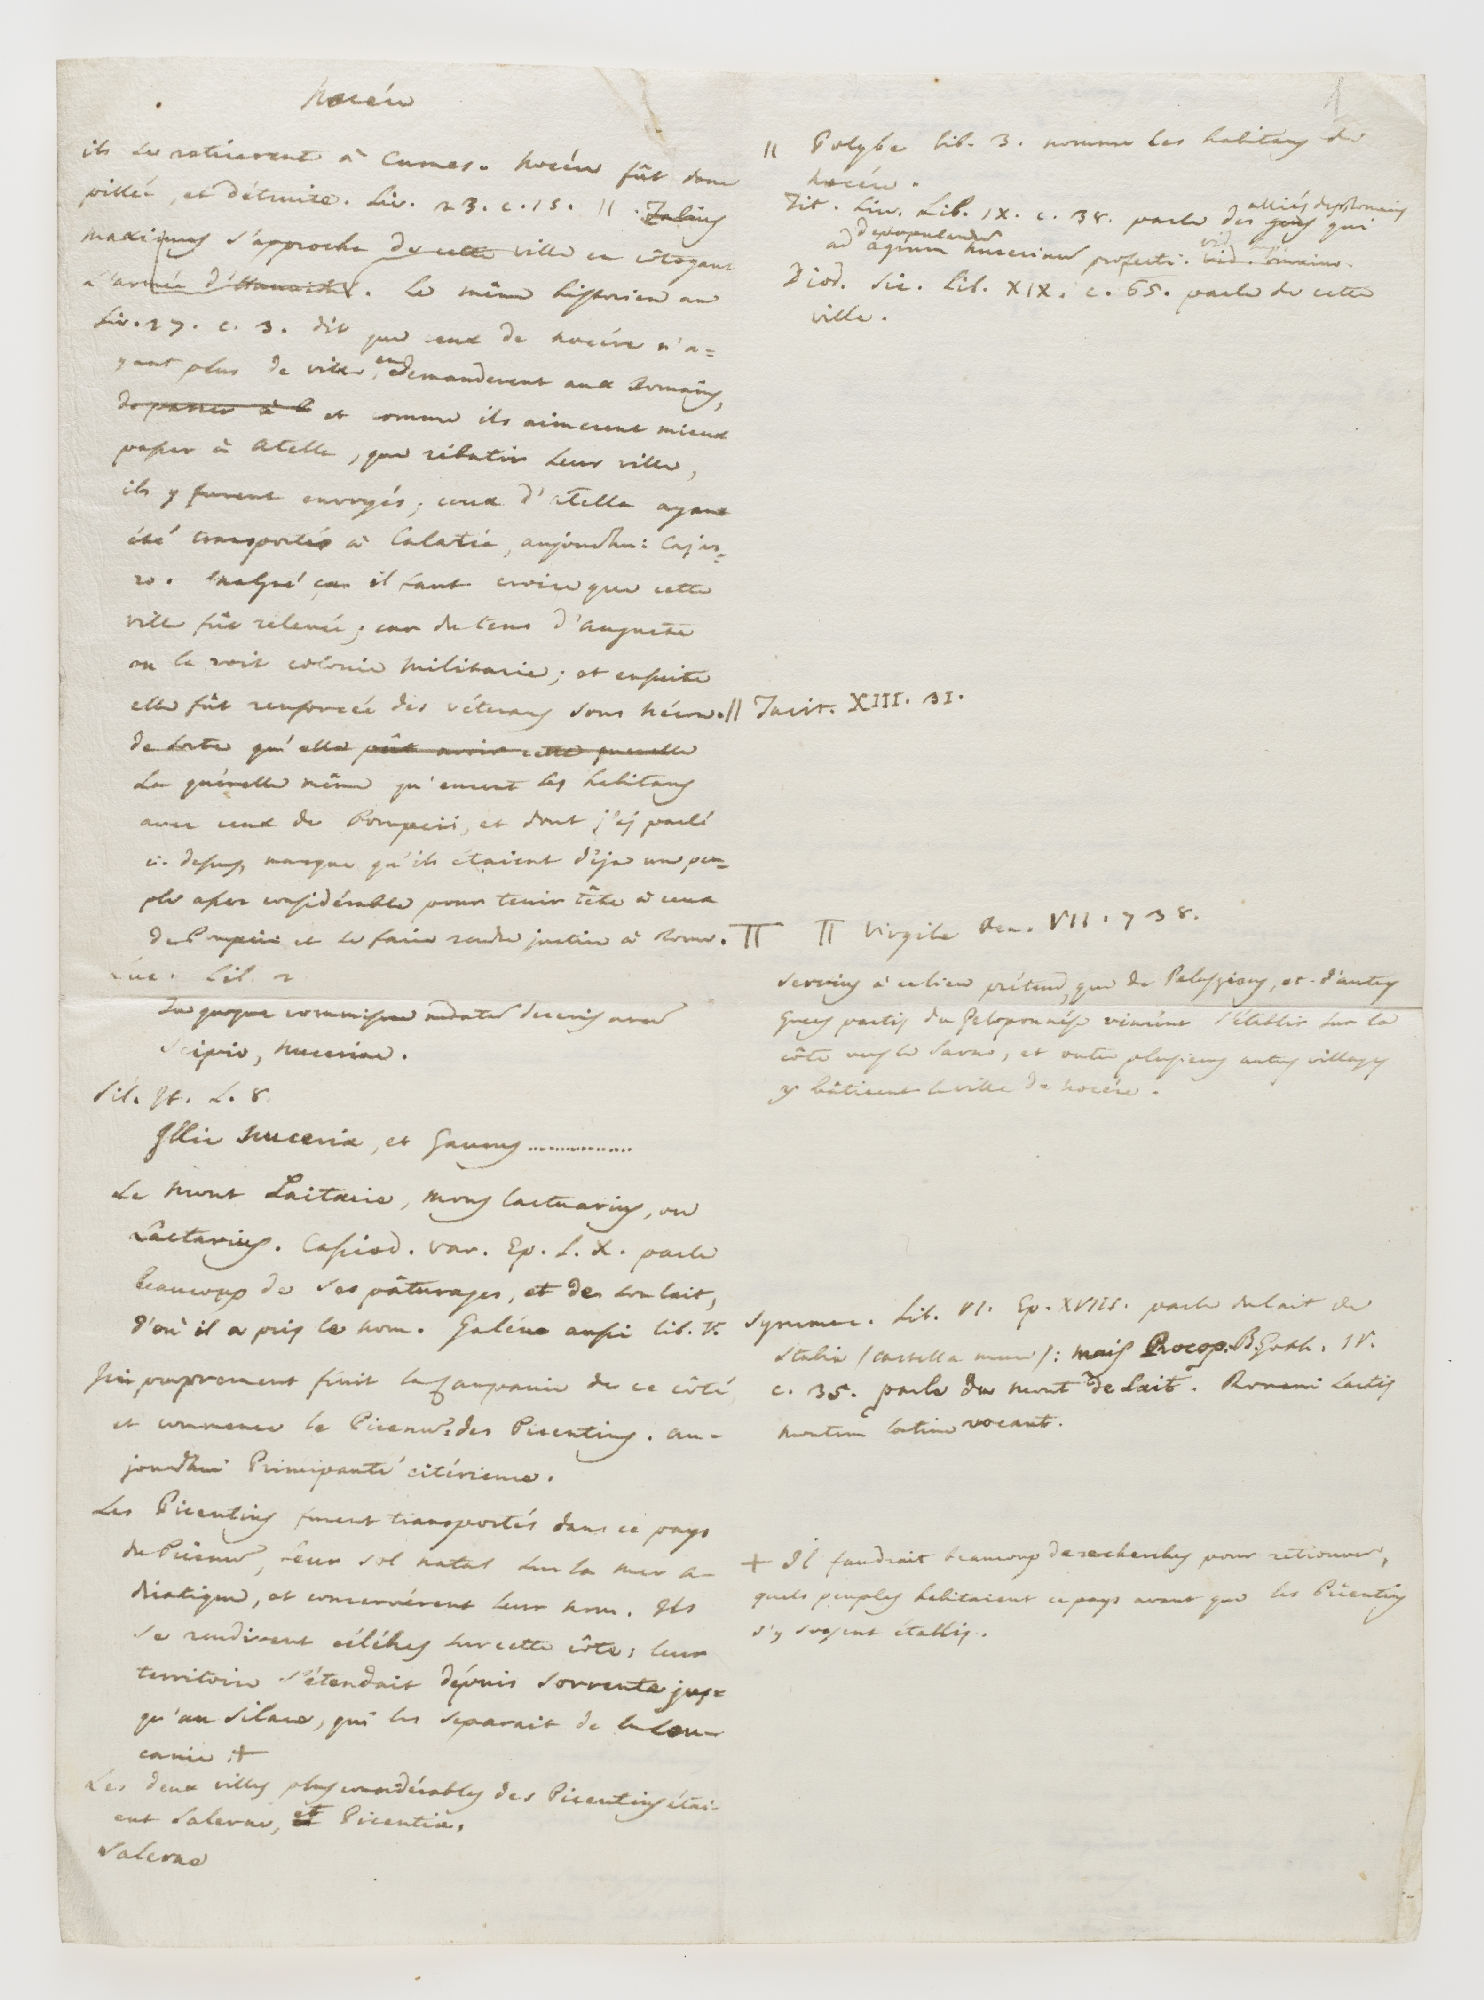 Nocéra
ils se retirerent à Cumes. Nocéra fût donc
pillée, et détruite. Liv. 23. c. 15. // Fabius
Maximus s'approcha de cette ville en côtoyant
l'armée d'Hannibal. Le même historien au
Liv. 27. c. 3. dit que ceux de Nocére n'a=
yant plus de ville, en demanderent aux Romains,
de passer à l et comme ils aimerent mieux
passer à Atella, que rebatir leur ville,
ils y furent envoyés; ceux d'Atella ayant
été transportés à Calatie, aujourdhui Cajaz=
zo. Malgré ça il faut croire que cette
ville fût relevée; car du tems d'Auguste
on la voit colonie militaire; et ensuite
elle fût renforcée des véterans sous Néron. //
de sorte qu'elle pût avoir cette querelle
La quérelle même qu'eurent les habitans
avec ceux de Pompeii, et dont j'ai parlé
ci-dessus, marque qu'ils étaient déja un peu=
ple assez considérable pour tenir tête à ceux
de Pompeii et se faire rendre justice à Rome. TT
Luc. Lib. 2
Tu quoque commissa nudatus deceris arce
Scipio, Nuceriae.
Sil. It. L. 8.
Illic Nuceria, et Gaurus ...............
Le Mont Laitarie, Mons lactuarius, ou
Lactarius. Cassiod. Var. Ep. L. X. parle
beaucoup de ses pâturages, et de son lait,
d'où il a pris le nom. Galéne aussi lib. V.
Ici proprement finit la Campanie de ce côté
et commence le Picenum des Picentins. au=
jourdhui Principauté citérieure.
Les Picentins furent transportés dans ce pays
du Picenum, leur sol natal sur la mer A=
driatique, et conservérent leur nom. Ils
se rendirent célébres sur cette côte; leur
territoire s'étendait dépuis Sorrente jus=
qu'au Silare, qui les separait de la Lou=
canie. +
Les deux villes plus considérables des Picentins étai=
ent Salerne, et Picentia.
Salerne
1
// Polybe lib. 3. nomme les habitans de
Nocéra.
Tit. Liv. Lib. IX. c. 38. parle des alliés des Romains gens qui
ad depopulandum agrum Nucerinum profecti. vid.
Diod. Sic. Lib. XIX. c. 65. parle de cette
ville.
// Tacit. XIII. 31.
TT Virgile Aen. VII. 738.
Servius à ce lieu prétend, que de Pelasgiens, et d'autres
Grecs partis du Peloponnése vinrent s'établir sur la
côte vers le Sarno, et outre plusieurs autres villages
y bâtirent la ville de Nocére.
Symmac. Lib. VI. Ep. XVIII. parle du lait de
Stabia (Castella mare): mais Procop. B. Goth. IV.
c. 35. parle du mont de Lait. Romani Lactis
montem latine vocant.
+ Il faudrait beaucoup de recherches pour retrouver,
quels peuples habitaient ce pays avant que les Picentins
s'y soyent établis.